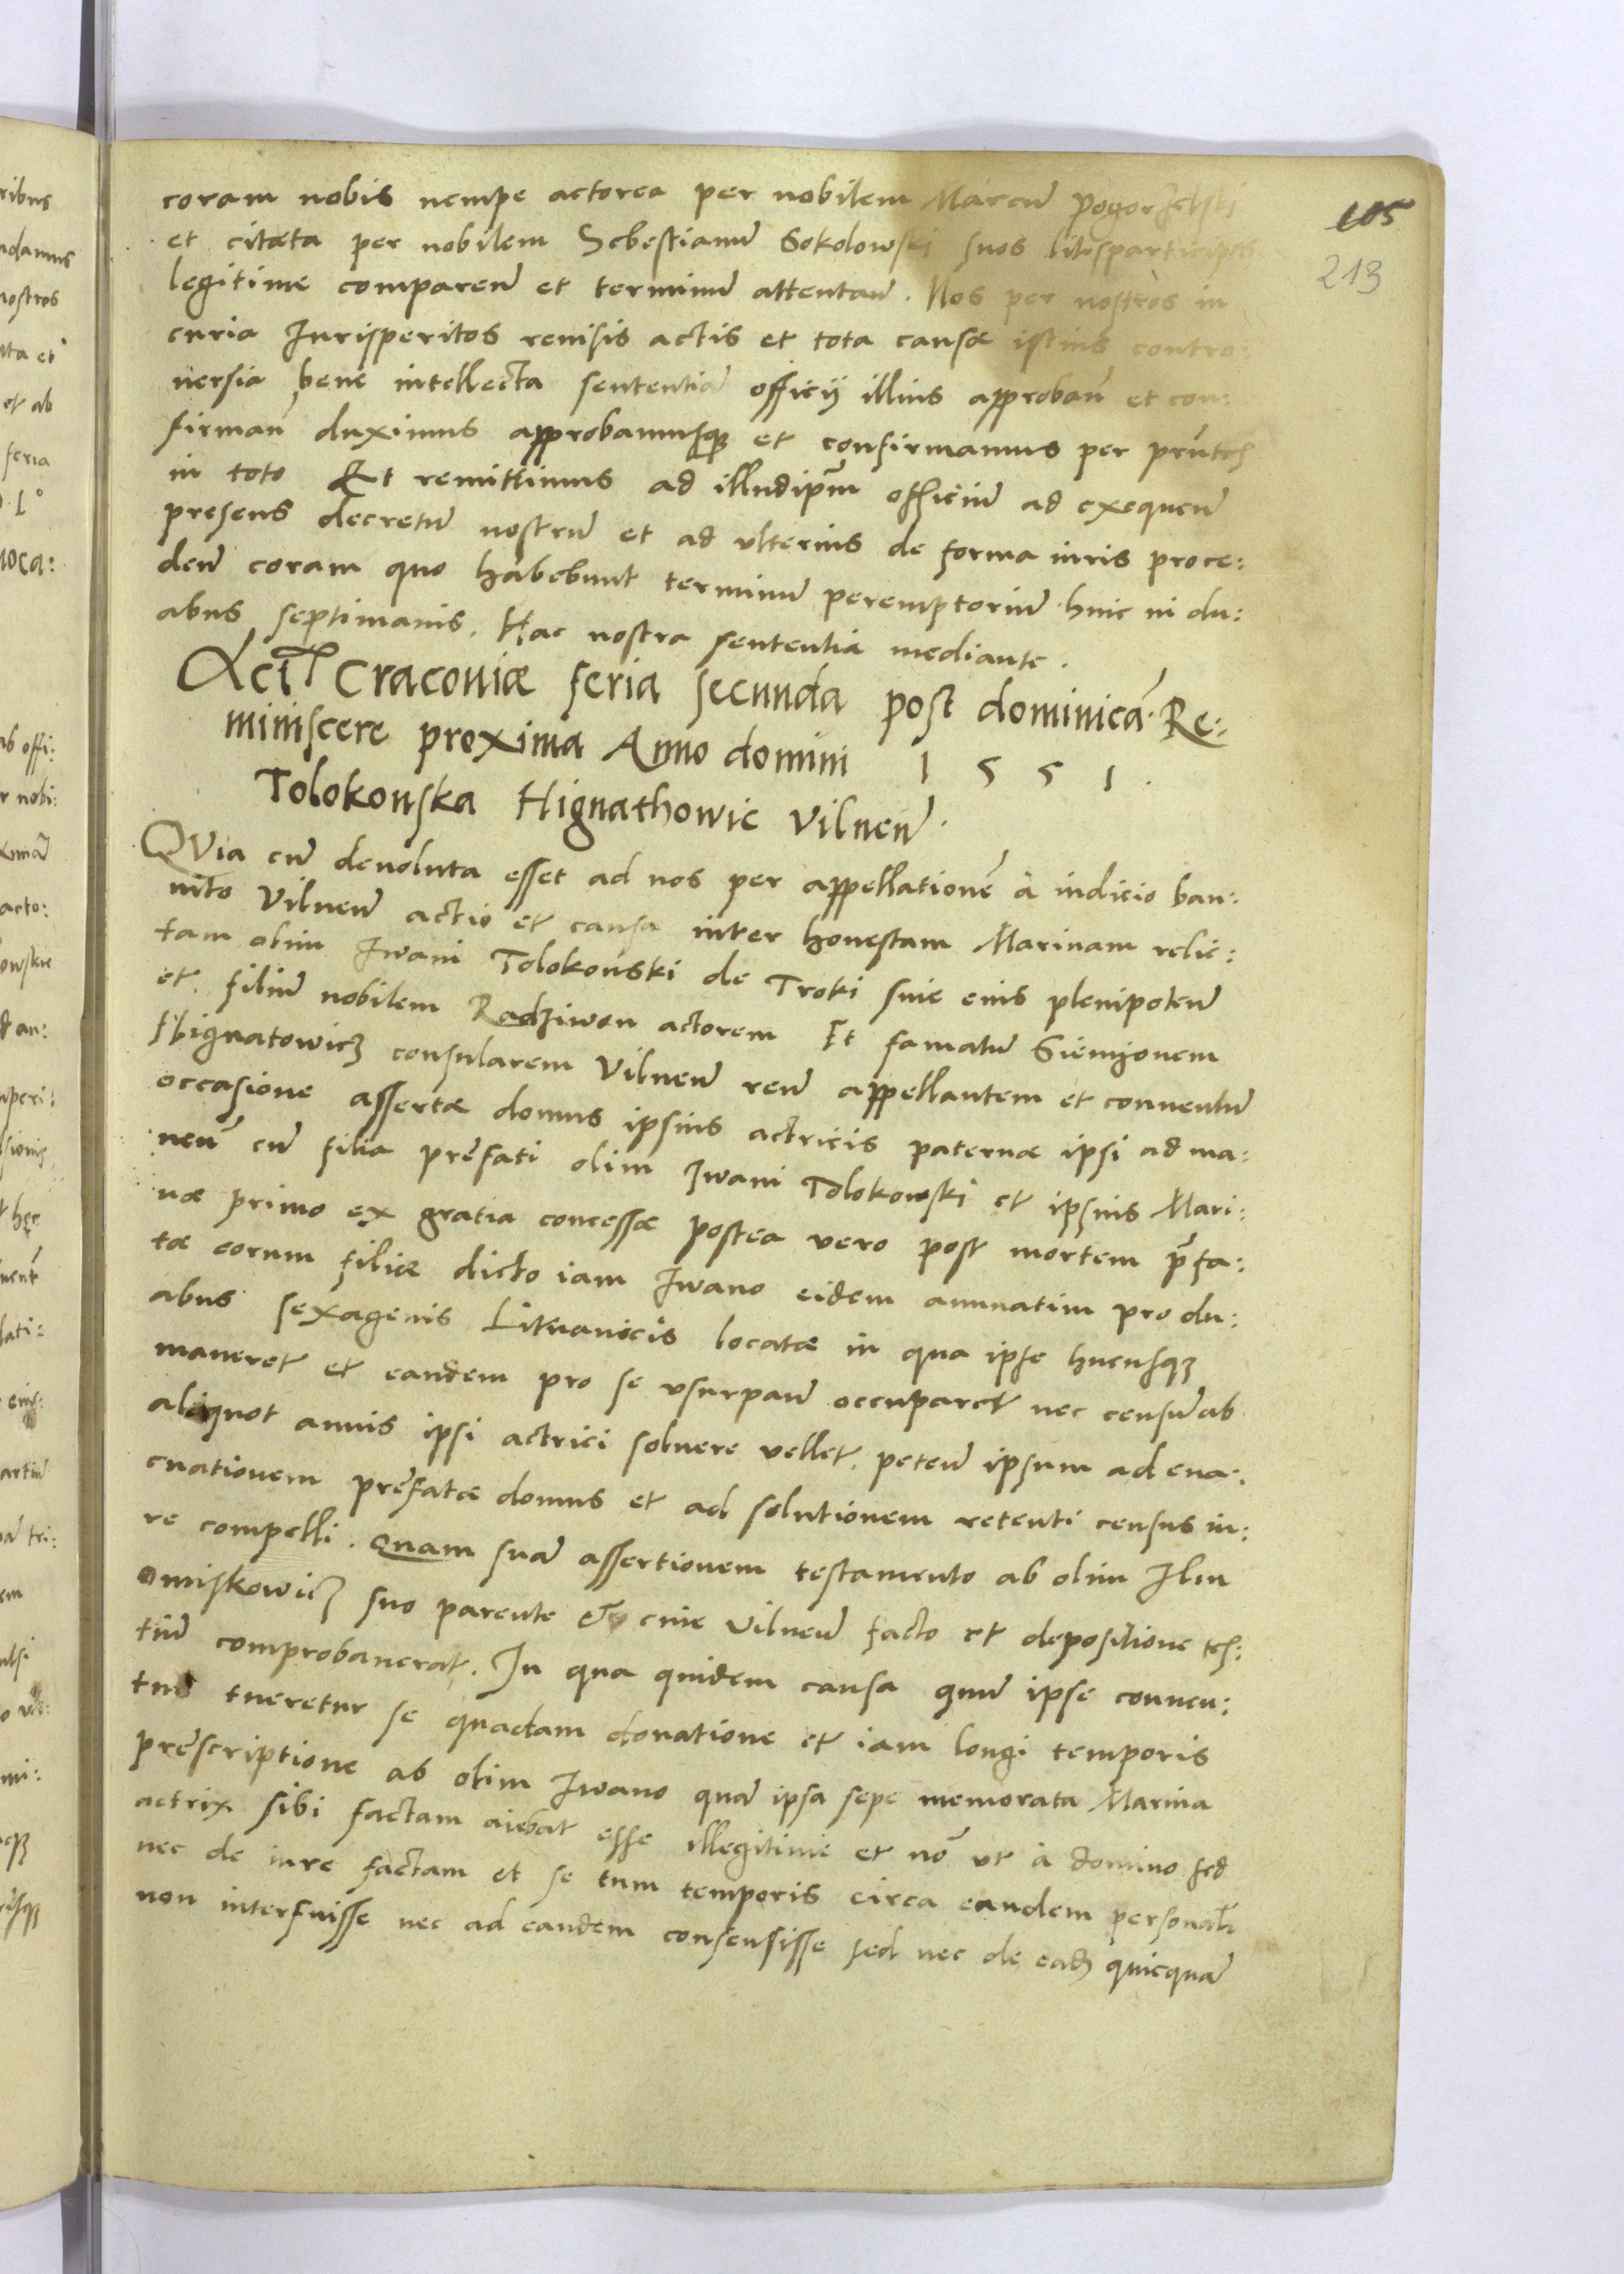 coram nobis nempe actorea per nobilem Marcũ Pogorzelski
et citata per nobilem Sebestianũ Sokolowski suos litisparticipes
legitime comparen̄ et terminũ attentan̄. Nos per nostros in
curia Jurisperitos reuisis actis et tota causæ istius contro:
uersia bene intellecta sententiã officij illius approban̄ et con:
firman̄ duximus approbamusq; et confirmamus per prñtes
in toto Et remittimus ad illudipm̄ officiũ ad exequen̄
presens decretũ nostrũ et ad vlterius de forma iuris proce:
den̄ coram quo habebunt terminũ peremptoriũ hinc in du:
abus septimanis. Hac nostra sententia mediante.
Act̃ Craconiæ feria secunda post dominicã Re:
miniscere proxima Anno domini 1551.
Tolokonska Hignathowic Vilnen̄.
QVia cũ deuoluta esset ad nos per appellationẽ à iudicio ban:
nito Vilnen̄ actio et causa inter honestam Marinam relic:
tam olim Iwani Tolokonski de Troki siue eius plenipoten̄
et filiũ nobilem Radziwon actorem Et famatũ Siemionem
Hignatowicz consularem Vilnen̄ reũ appellantem et conuentũ
occasione assertæ domus ipsius actricis paternæ ipsi ad ma:
nen̄ cũ filia prefati olim Iwani Tolokowski et ipsius Mari:
næ primo ex gratia concessæ postea vero post mortem p̃fa:
tæ eorum filiæ dicto iam Iwano eidem annuatim pro du:
abus sexagenis Lituanicis locatæ in qua ipse hucusq;
maneret et eandem pro se vsurpan̄ occuparet nec censũ ab
aliquot annis ipsi actrici soluere vellet. peten̄ ipsum ad eua:
cuationem prefatæ domus et ad solutionem retenti census iu:
re compelli. Quam suã assertionem testamento ab olim Ilin
Omiskowicz suo parente et ciue Vilnen̄ facto et depositione tes:
tiũ comprobauerat. In qua quidem causa qum̃ ipse conuen:
tus tueretur se quadam donatione et iam longi temporis
prescriptione ab olim Iwano quã ipsa sepe memorata Marina
actrix sibi factam aiebat esse illegitime et nõ vt à domino sed
nec de iure factam et se tum temporis circa eandem personalr̃
non interfuisse nec ad eandem consensisse sed nec de eadẽ quicquã
105
213